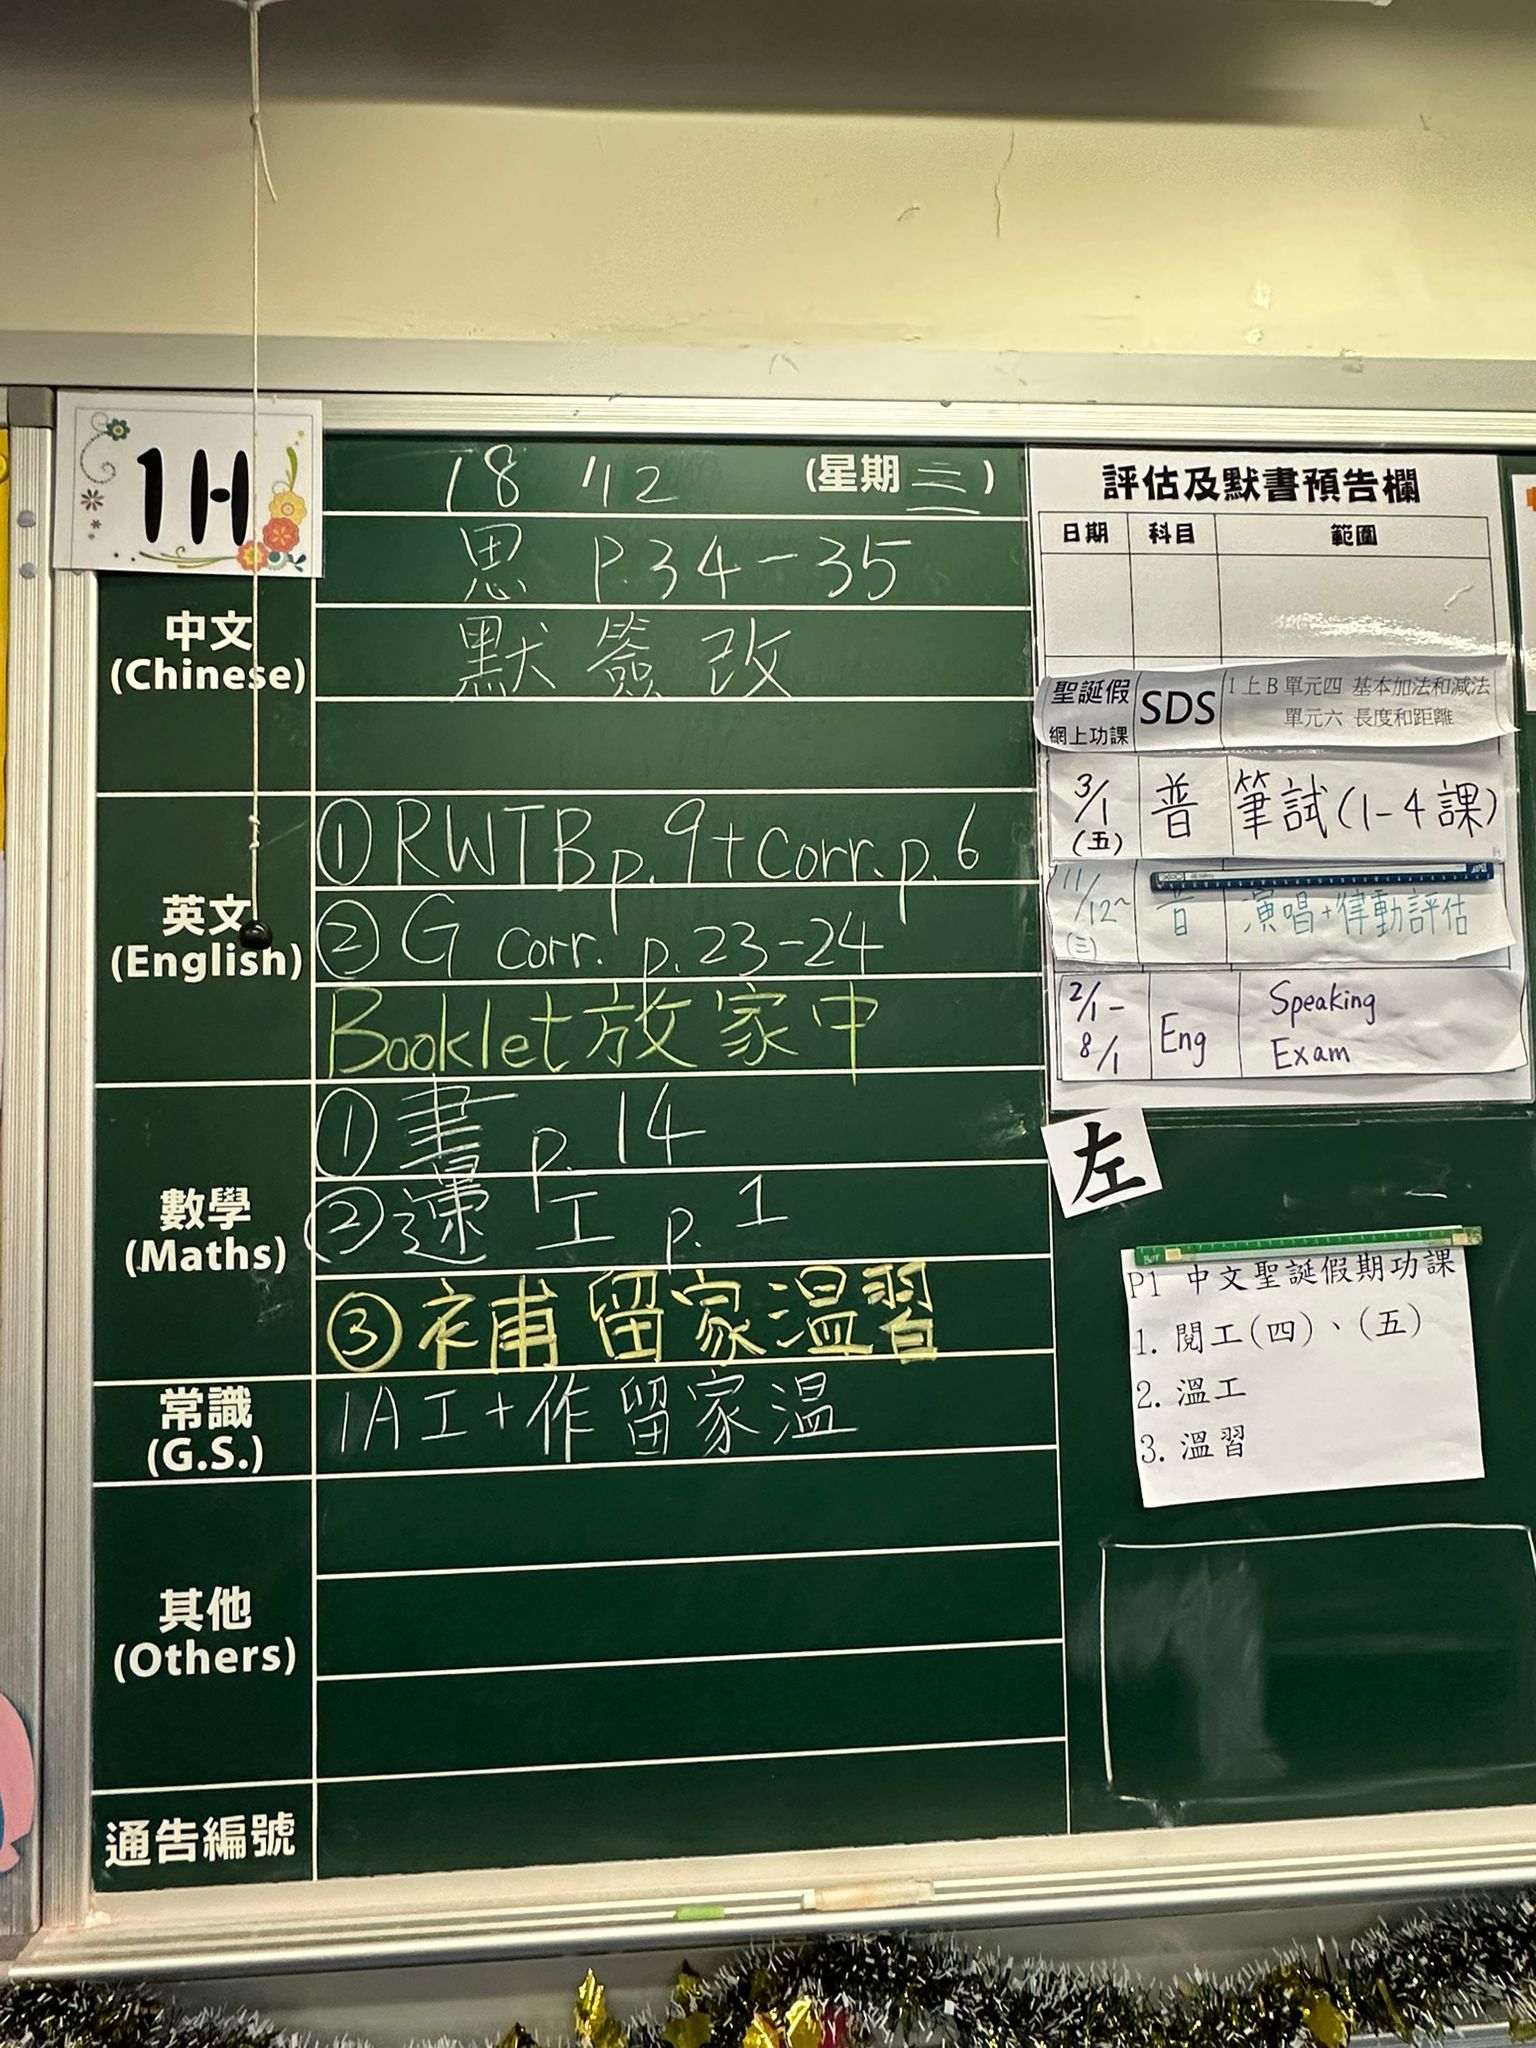 1H
18/12 (星期三)
中文
(Chinese)
思 P.34-35
默簽改
英文
(English)
①RWTB p.9+Corr. p.6
②G Corr. p.23-24
Booklet放家中
數學
(Maths)
①書 p.14
②運工 p.1
③補留家溫習
常識
(G.S.)
1A工+作留家溫
其他
(Others)
通告編號
評估及默書預告欄
日期 科目 範圍
聖誕假
網上功課 SDS 1上B單元四 基本加法和減法
單元六 長度和距離
3/1
(五) 普 筆試(1-4課)
11/12~
(三) 音 演唱+律動評估
2/1-
8/1 Eng Speaking
Exam
左
P1 中文聖誕假期功課
1. 閱工(四)、(五)
2. 溫工
3. 溫習